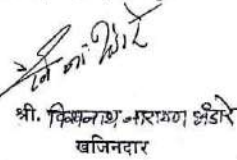 श्री. विश्वनाथ नारायण भंडारे
खजिनदार